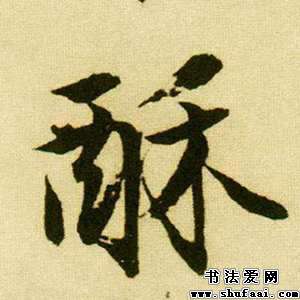 酥
书法爱网
www.shufaai.com